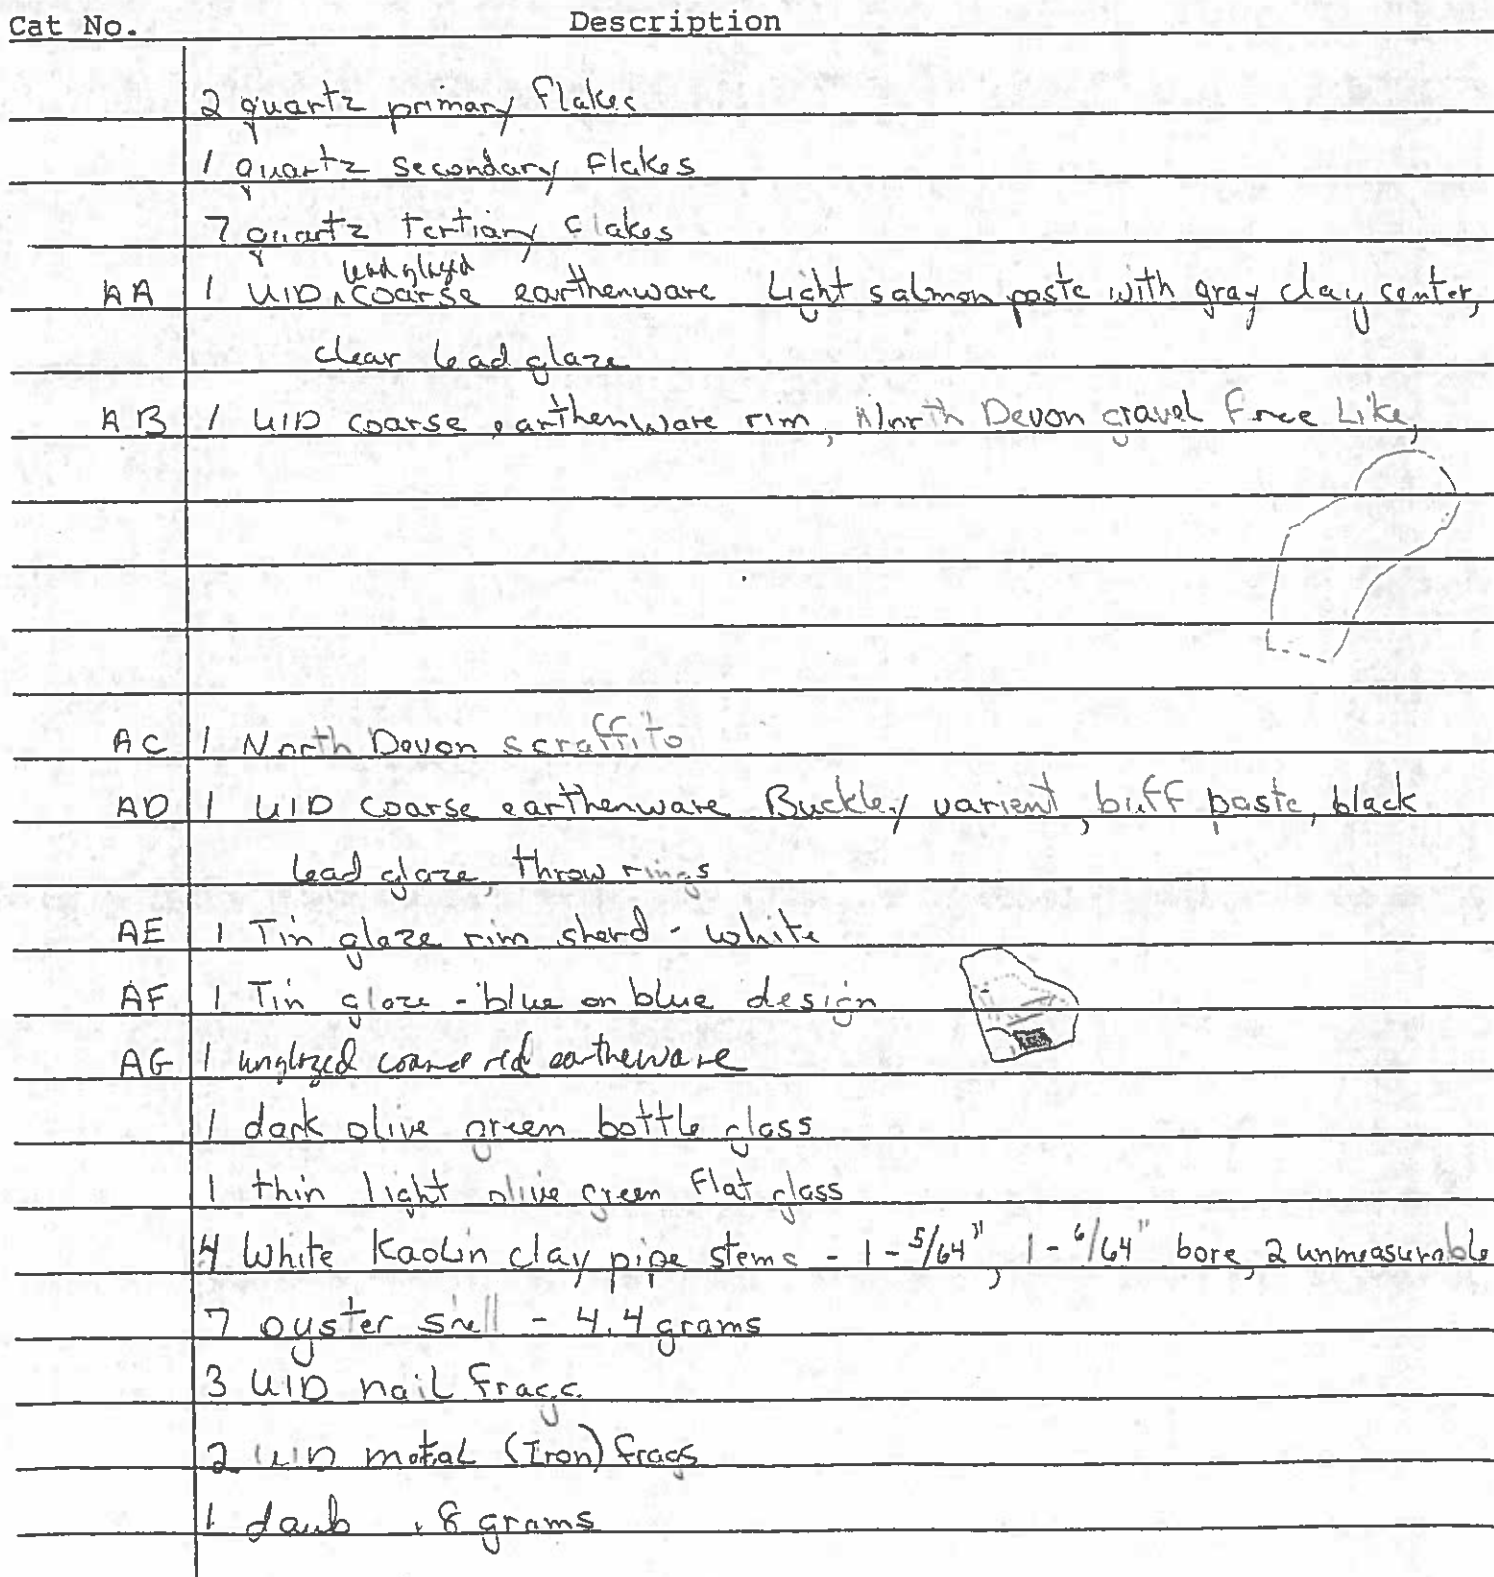 Cat No. Description
2 quartz primary flakes
1 quartz secondary flakes
7 quartz tertiary flakes
AA 1 UID ^lead glazed coarse earthenware Light salmon paste with gray clay center,
clear lead glaze
AB 1 UID coarse earthenware rim, North Devon gravel free Like,
AC 1 North Devon scraffito
AD 1 UID coarse earthenware Buckley varient, buff paste, black
lead glaze, throw rings
AE 1 Tin glaze rim sherd - white
AF 1 Tin glaze - blue on blue design
AG 1 unglazed coarse red eartheware
1 dark olive green bottle glass
1 thin light olive green flat glass
4 White Kaolin clay pipe stems - 1 - 5/64", 1 - 6/64" bore, 2 unmeasurable
7 oyster shell - 4.4 grams
3 UID nail frags.
2 UID metal (Iron) frags
1 daub .8 grams